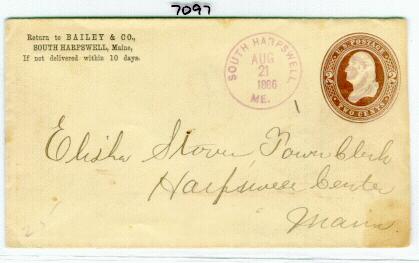 7097
Return to BAILEY & CO.,
SOUTH HARPSWELL, Maine,
If not delivered within 10 days.
SOUTH HARPSWELL
AUG
21
1886
ME.
U.S. POSTAGE
TWO CENTS
Elisha Stover Town Clerk
Harpswell Center
Maine